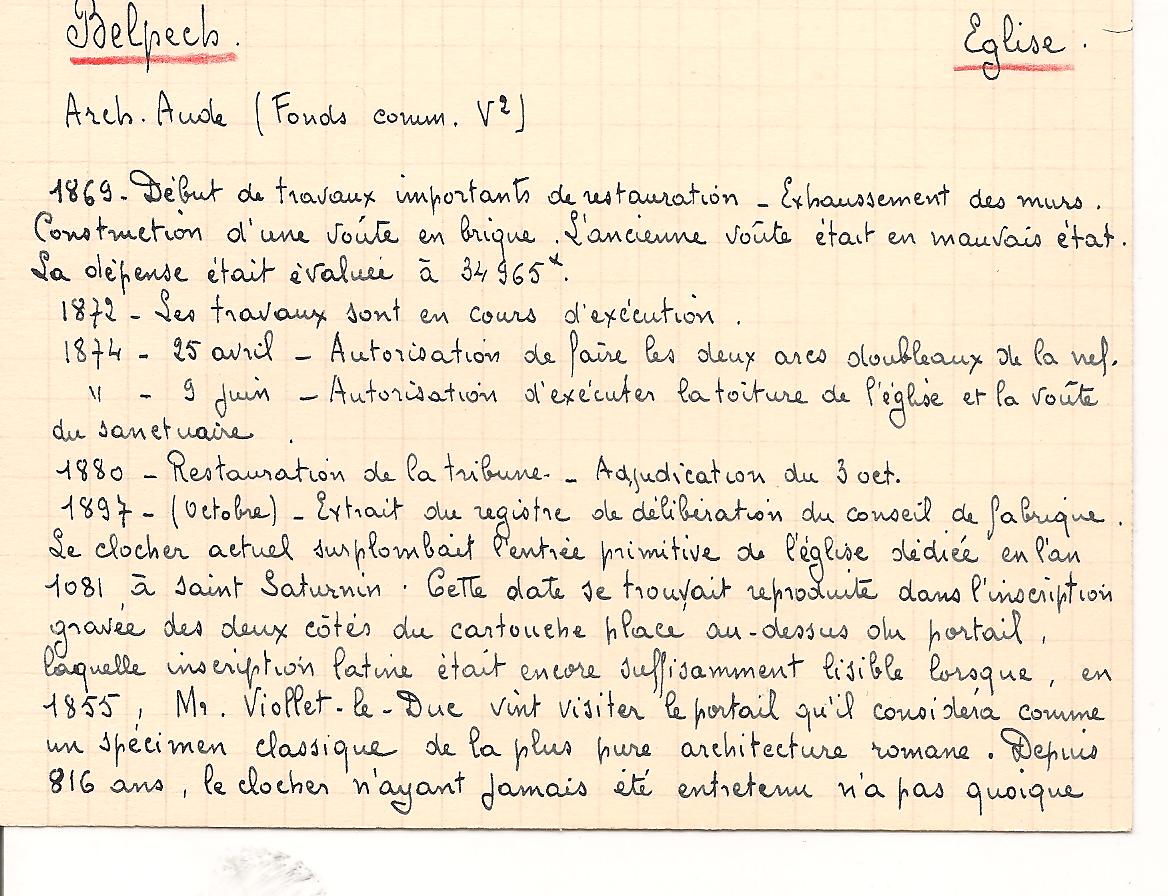 Belpech. Eglise.
Arch. Aude (Fonds comm. V²)
1869 - Début de travaux importants de restauration - Exhaussement des murs.
Construction d'une voûte en brique. L'ancienne voûte était en mauvais état.
La dépense était évaluée à 34 965ᶠ.
1872 - Les travaux sont en cours d'exécution.
1874 - 25 avril - Autorisation de faire les deux arcs doubleaux de la nef.
" - 9 juin - Autorisation d'exécuter la toiture de l'église et la voûte
du sanctuaire.
1880 - Restauration de la tribune - Adjudication du 3 oct.
1897 - (Octobre) - Extrait du registre de délibération du conseil de fabrique.
Le clocher actuel surplombait l'entrée primitive de l'église dédiée en l'an
1081 à saint Saturnin. Cette date se trouvait reproduite dans l'inscription
gravée des deux côtés du cartouche place au-dessus du portail,
laquelle inscription latine était encore suffisamment lisible lorsque, en
1855, Mr. Viollet-le-Duc vint visiter le portail qu'il considéra comme
un spécimen classique de la plus pure architecture romane. Depuis
816 ans, le clocher n'ayant jamais été entretenu n'a pas quoique